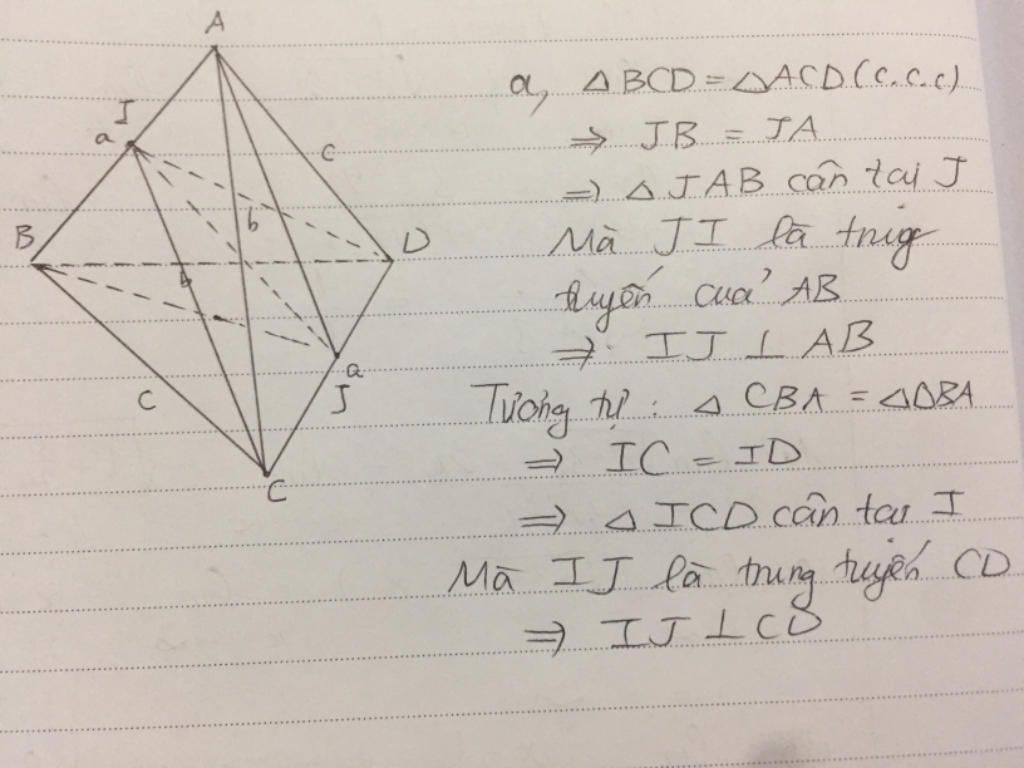 A
I
a
c
B
b
D
b
a
J
c
C
a, △BCD = △ACD (c.c.c)
⇒ JB = JA
⇒ △JAB cân tại J
Mà JI là trung
tuyến của AB
⇒ IJ ⊥ AB
Tương tự : △ CBA = △DBA
⇒ IC = ID
⇒ △ ICD cân tại I
Mà IJ là trung tuyến CD
⇒ IJ ⊥ CD